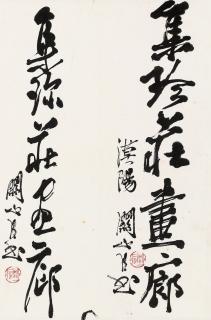 集珍莊畫廊
漢陽 關山月书
集珎莊画廊
關山月书